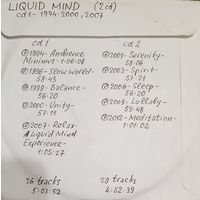 LIQUID MIND (2cd)
cd 1 - 1994-2000, 2007
cd 1
℗1994- Ambience
Minimus- 1:06:08
℗1996- Slow World-
58:43
℗1999- Balance-
56:20
℗2000- Unity-
57:11
℗2007- Relax-
A Liquid Mind
Experience-
1:05:27
26 tracks
5:03:52
cd 2
℗2001- Serenity-
58:06
℗2003- Spirit-
57:21
℗2006- Sleep-
56:20
℗2009- Lullaby-
59:48
℗2012- Meditation-
1:01:02
29 tracks
4:52:39